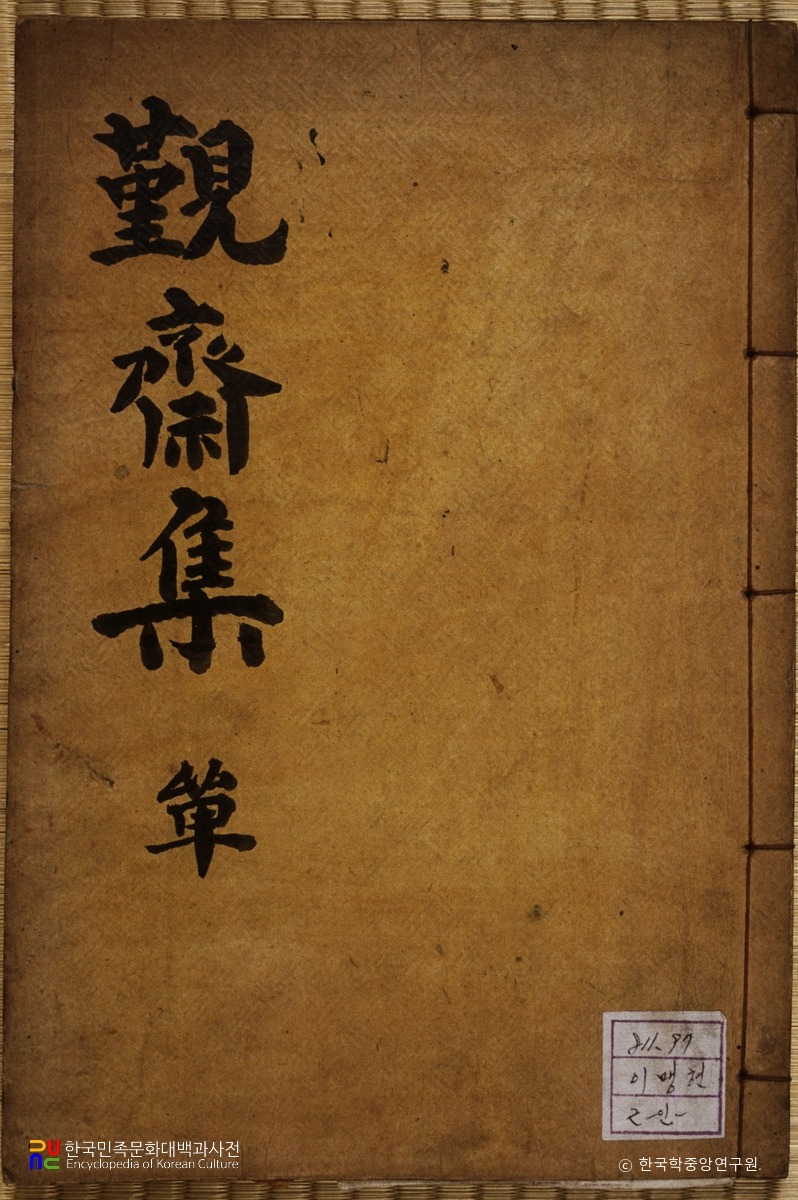 覲
齋
集
單
811.97
이맹현
한국민족문화대백과사전
Encyclopedia of Korean Culture
© 한국학중앙연구원.